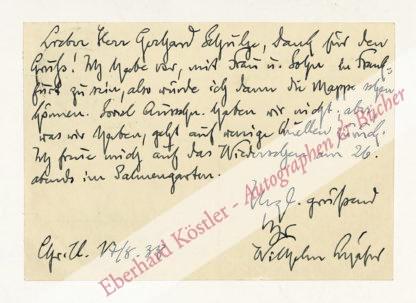 Lieber Herr Gerhard Schulze, Dank für den
Gruß! Ich habe vor, mit Frau u. Sohn in Frank-
furt zu sein, also würde ich dann die Mappe sehen
können. Soviel haben wir nicht; aber
was wir haben, geht auf wenige Quellen zurück.
Ich freue mich auf das Wiedersehen am 26.
abends im Palmengarten.
grüßend
Ihr
Wilhelm Schäfer
Eberhard Köstler - Autographen & Bücher